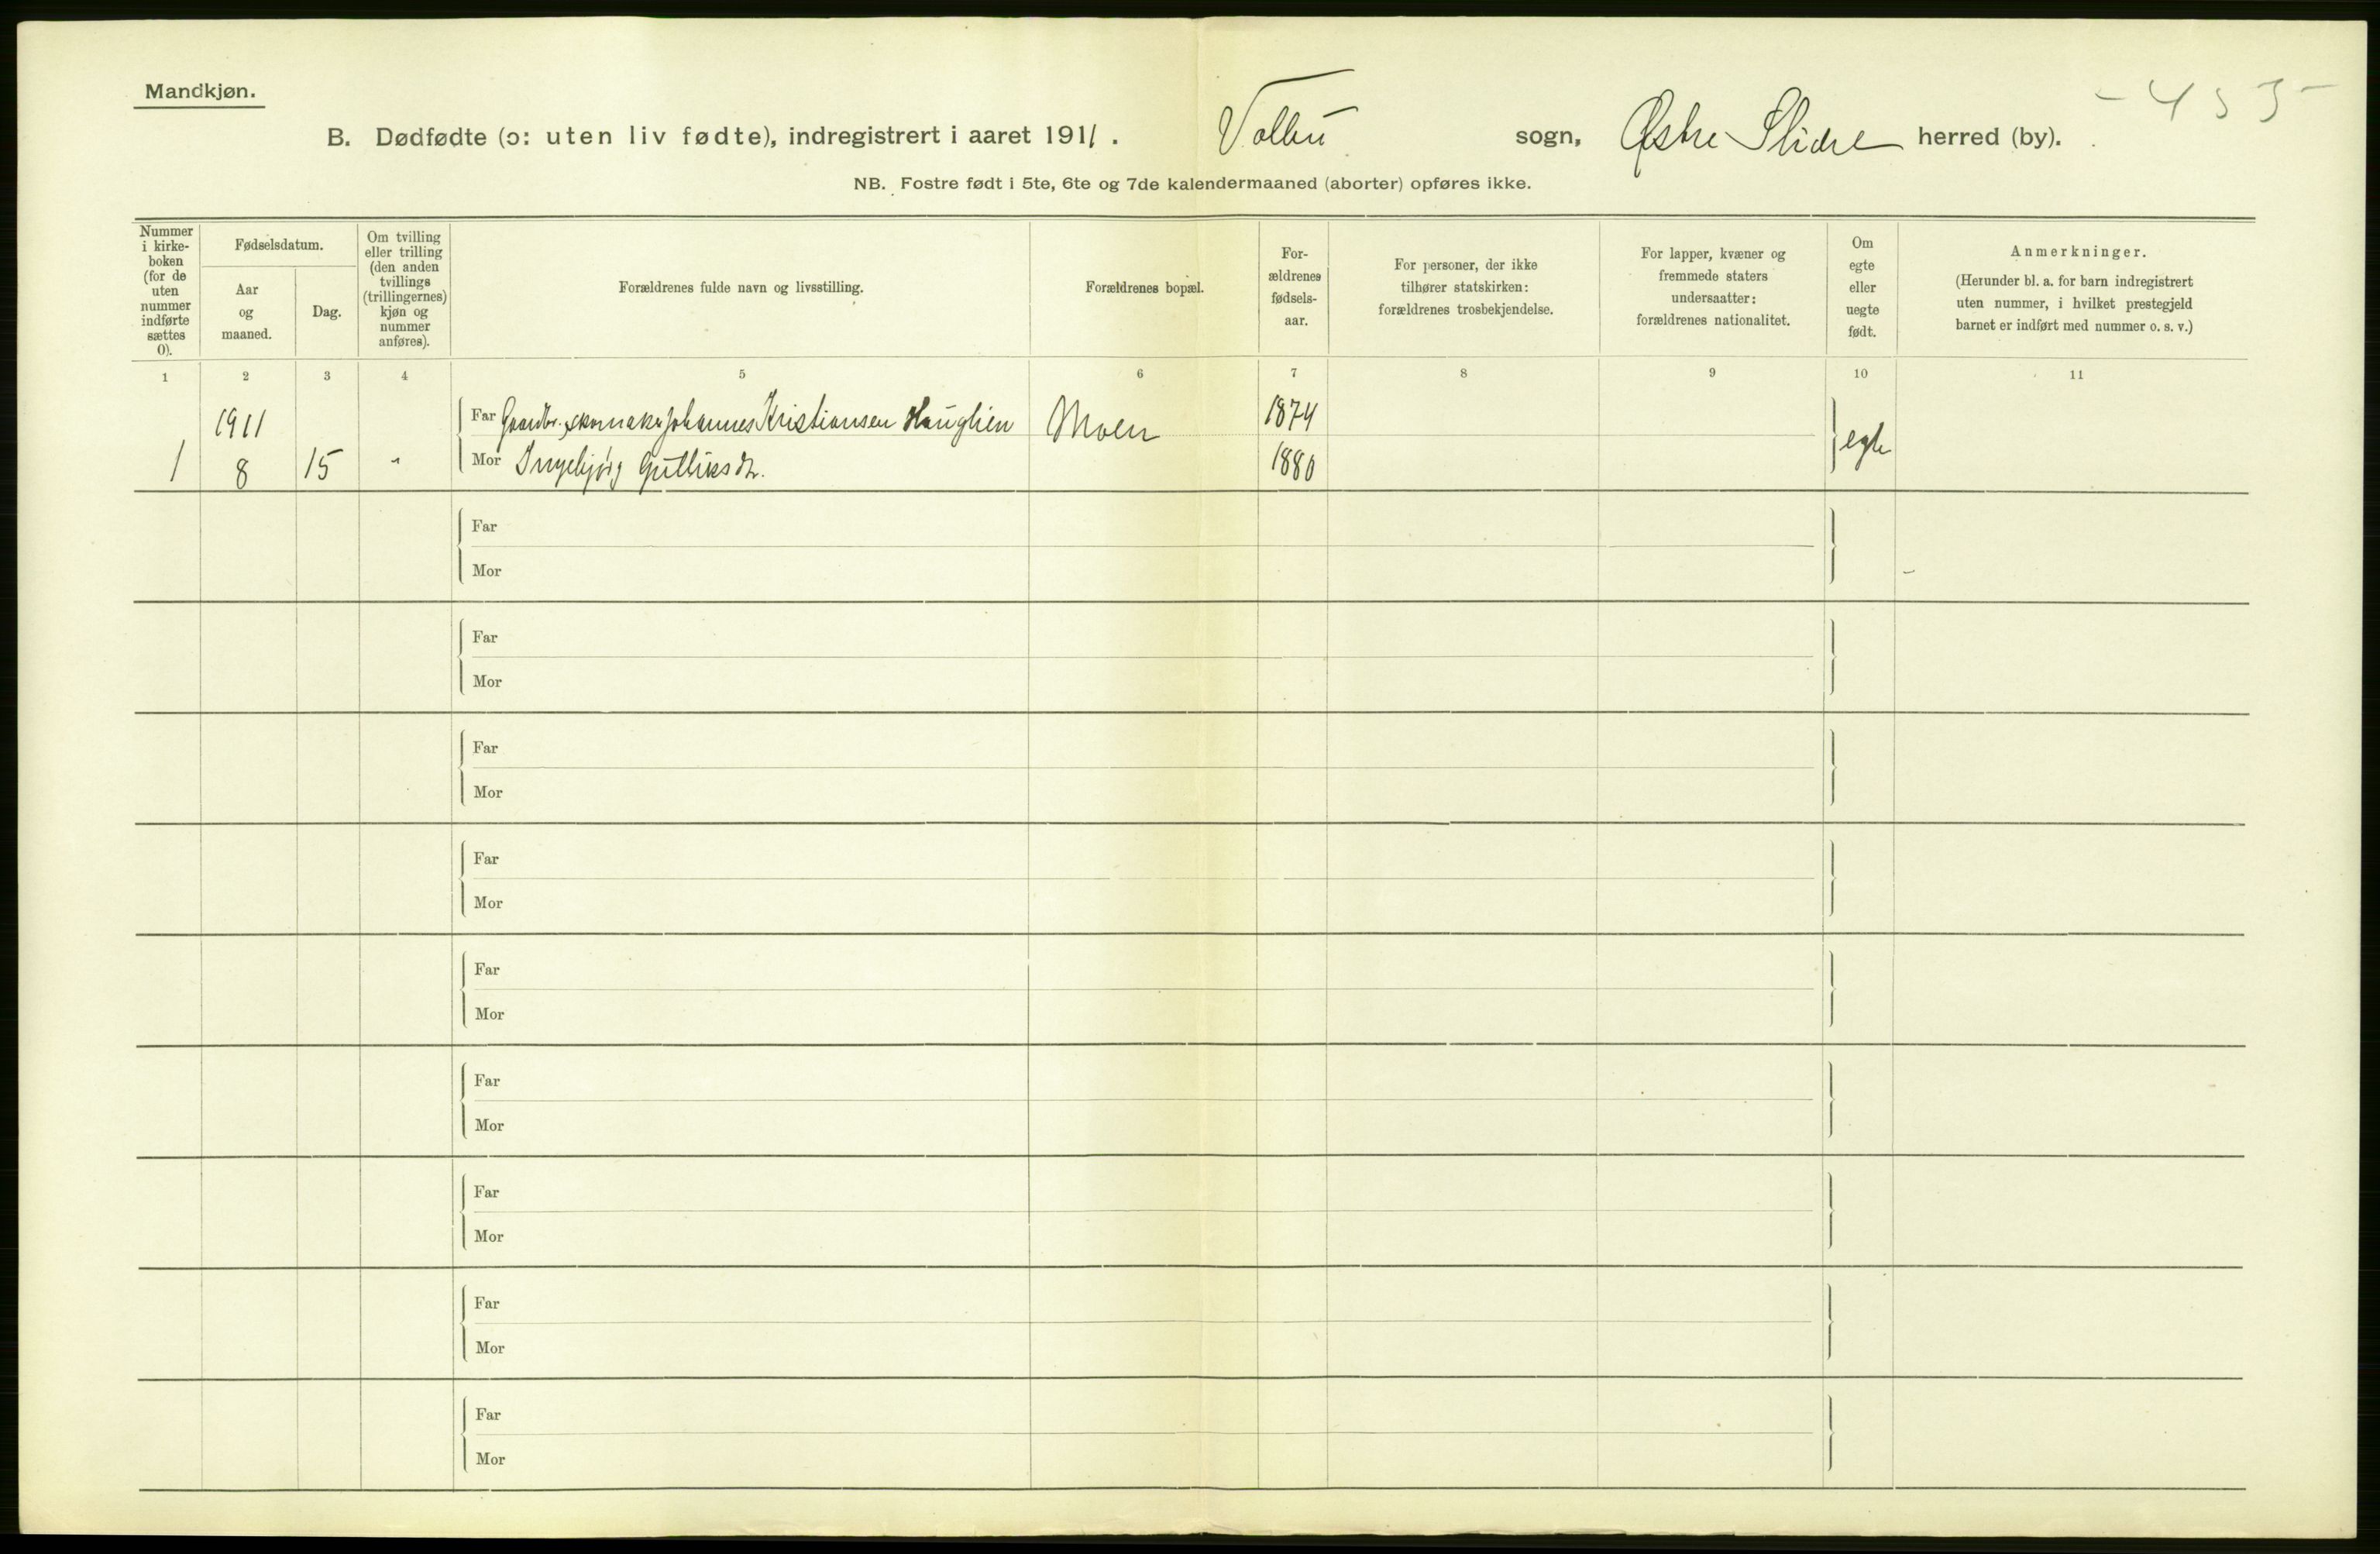 Mandkjøn.
- 4 5 5 -
B. Dødfødte (ɔ: uten liv fødte), indregistrert i aaret 1911. Volbu sogn, Østre Slidre herred (by).
NB. Fostre født i 5te, 6te og 7de kalendermaaned (aborter) opføres ikke.
Nummer
i kirke-
boken
(for de
uten
nummer
indførte
sættes
0).
Fødselsdatum.
Aar
og
maaned.
Dag.
Om tvilling
eller trilling
(den anden
tvillings
(trillingernes)
kjøn og
nummer
anføres).
Forældrenes fulde navn og livsstilling.
Forældrenes bopæl.
For-
ældrenes
fødsels-
aar.
For personer, der ikke
tilhører statskirken:
forældrenes trosbekjendelse.
For lapper, kvæner og
fremmede staters
undersaatter:
forældrenes nationalitet.
Om
egte
eller
uegte
født.
Anmerkninger.
(Herunder bl. a. for barn indregistrert
uten nummer, i hvilket prestegjeld
barnet er indført med nummer o. s. v.)
1 2 3 4 5 6 7 8 9 10 11
1911 Far Gaardbr. skomaker Johannes Kristiansen Hauglien Moen 1874
1 8 15 " Mor Ingebjørg Gulliksdr. 1880 egte
Far
Mor
Far
Mor
Far
Mor
Far
Mor
Far
Mor
Far
Mor
Far
Mor
Far
Mor
Far
Mor